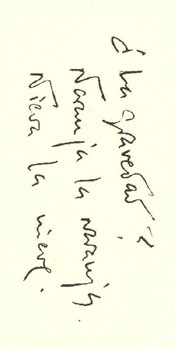 ¿La gravedad?
Naranja la naranja.
Nieva la nieve.